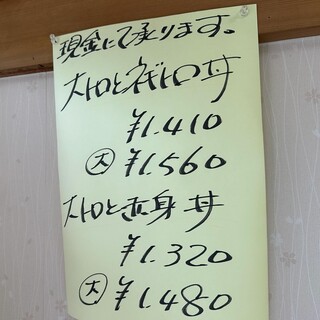 現金にて承ります。
大トロとネギトロ丼
¥1.410
大 ¥1.560
大トロと赤身丼
¥1.320
大 ¥1.480